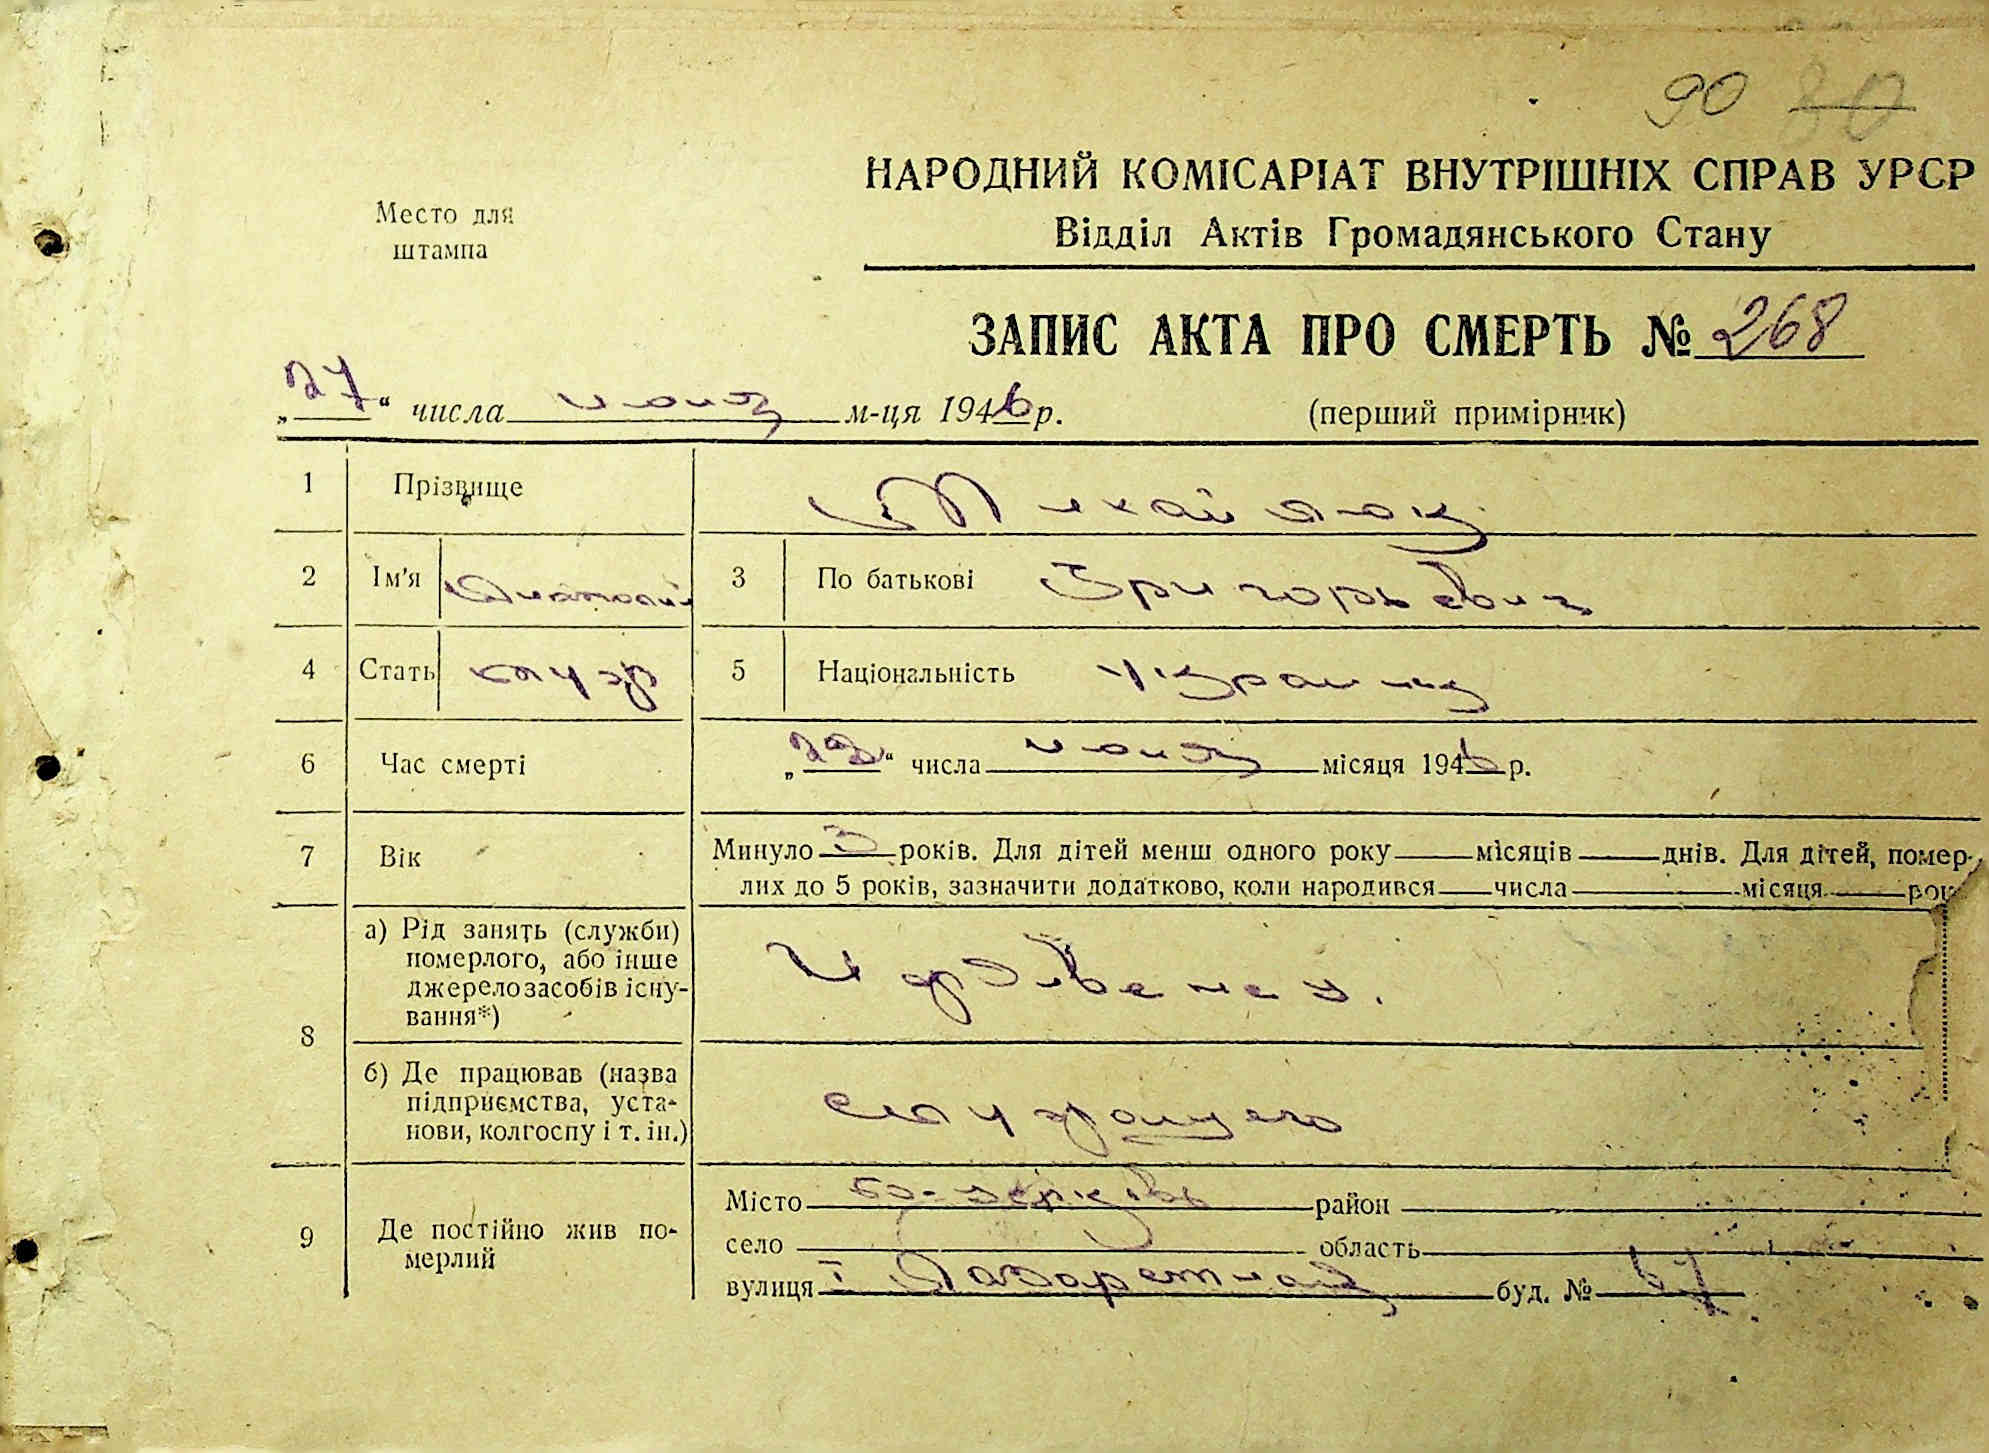 90 80
Место для
штампа
НАРОДНИЙ КОМІСАРІАТ ВНУТРІШНІХ СПРАВ УРСР
Відділ Актів Громадянського Стану
ЗАПИС АКТА ПРО СМЕРТЬ № 268
„27“ числа июня м-ця 1946 р. (перший примірник)
1 Прізвище
2 Ім'я Анатолий 3 По батькові Григорьевич
4 Стать муж 5 Національність украинец
6 Час смерті „22“ числа июня місяця 1946 р.
7 Вік Минуло 3 років. Для дітей менш одного року місяців днів. Для дітей, помер-
лих до 5 років, зазначити додатково, коли народився числа місяця рок
8 а) Рід занять (служби)
померлого, або інше
джерело засобів існу-
вання*)
Иждивенец.
б) Де працював (назва
підприємства, уста-
нови, колгоспу і т. ін.)
служащего
9 Де постійно жив по-
мерлий
Місто Б-Церковь район
село область
вулиця I Лазаретная буд. № 67